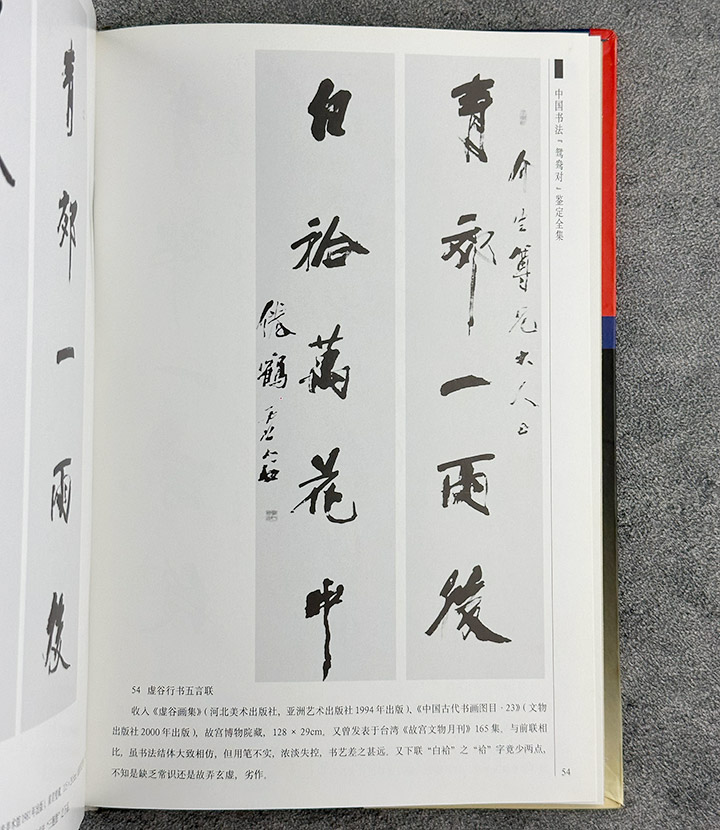 青郊一雨後
中国书法“鸳鸯对”鉴定全集
生尊兄大人正
青郊一雨後
白祫萬花中
鶴
54 虚谷行书五言联
收入《虚谷画集》（河北美术出版社，亚洲艺术出版社1994年出版）、《中国古代书画图目·23》（文物
出版社2000年出版），故宫博物院藏，128×29cm，又曾发表于台湾《故宫文物月刊》165集。与前联相
比，虽书法结体大致相仿，但用笔不实，浓淡失控，书艺差之甚远。又下联“白袷”之“袷”字竟少两点，
不知是缺乏常识还是故弄玄虚，劣作。
54